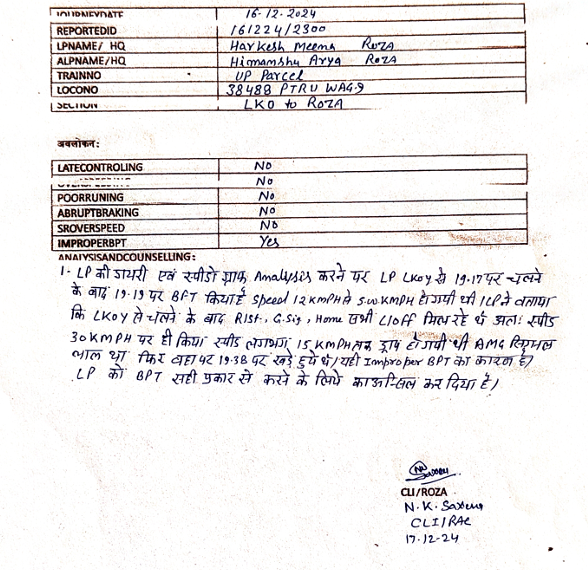 JOURNEYDATE 16-12-2024
REPORTEDID 161224/2300
LPNAME/ HQ Harkesh Meena ROZA
ALPNAME/HQ Himanshu Arya ROZA
TRAINNO UP Parcel
LOCONO 38488 PTRU WAG-9
SECTION LKO to ROZA
अवलोकन:
LATECONTROLING NO
OVERSPEEDING NO
POORRUNING NO
ABRUPTBRAKING NO
SROVERSPEED NO
IMPROPERBPT Yes
ANALYSISANDCOUNSELLING:
1- LP की डायरी एवं स्पीडो ग्राफ Analysis करने पर LP LKOY से 19-17 पर चलने
के बाद 19-19 पर BPT किया है speed 12 KMPH से 5.00 KMPH हो गयी थी । LP ने बताया
कि LKOY से चलने के बाद RIST., G.Sig, Home सभी L/off मिल रहे थे अतः स्पीड
30 KMPH पर ही किया स्पीड लगभग 15 KMPH तक ड्राप हो गयी थी AMG सिग्नल
लाल था फिर वहा पर 19-38 पर खड़े हुये थे। यही Improper BPT का कारण है।
LP को BPT सही प्रकार से करने के लिये काऊन्सिल कर दिया है।
CLI/ROZA
N. K. Saxena
CLI/RAC
17-12-24